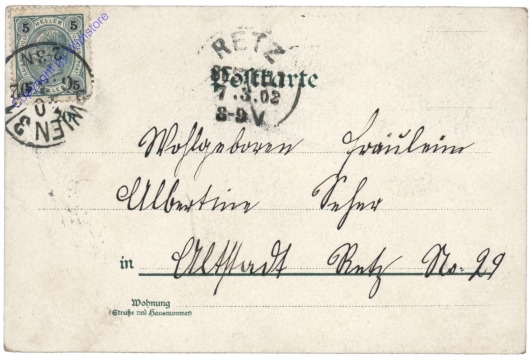 5 HELLER 5
WIEN 3
RETZ
7.3.02
8-9 V
Postkarte
Wohlgeboren Fräulein
Albertine Seher
in Altstadt Retz No. 29
Wohnung
(Straße und Hausnummer)